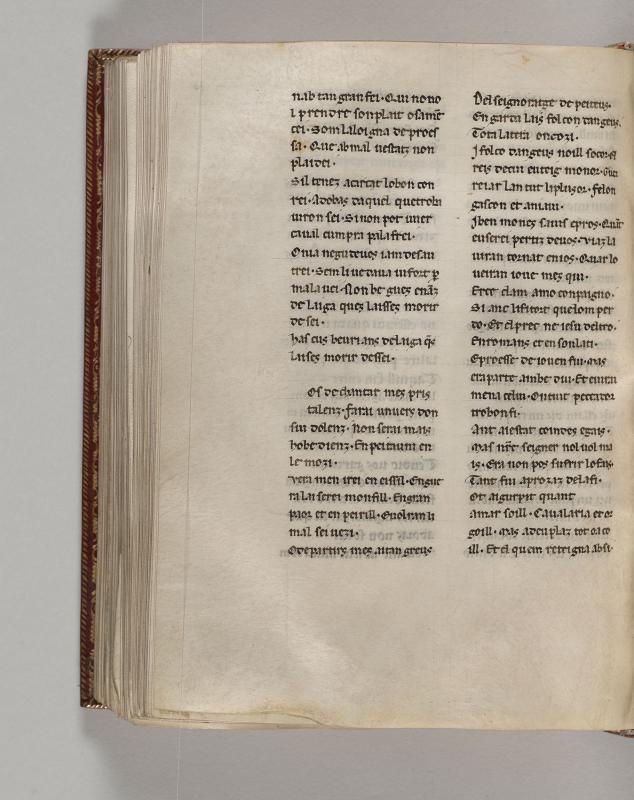 nab tan gran fei. Qui no uo
l prendre son plait o sa mt̄
cei. Som la loigna de proes
sa. Que ab mal uestatz non
plaidei.
Sil tenez acartat lo bon con
rei. Adobas daquel que troba
uiron sei. Si non pot auer
caual compra palafrei.
O uia negu de uos iam desau
trei. Sem li uedaua ui fort p̄
mala uei. Non begues enāz
de laiga ques laisses morir
de sei.
has cus beuri ans de laiga q̄s
laises morir dessei.
Os de chantar mes pris
talenz. farai un uers don
sui dolenz. Non serai mais
hobedienz. En peitaiu en
lemozi.
Vera men irei en eissil. En gue
ra laiserei mon fill. En gran
paor et en peirill. E uolran li
mal sei uezi.
O departirs mes aitan greus
Del seignoratge de peitieus.
En garda lais folcon dangieus.
Tota la tera on cozi.
Si folco dangeus no ill socor. El
reis de cui eu teig monor. Guer
reiar lan tut li plusor. felon
gascon et aniaui.
Si ben mones sauis e pros. Quāt
eu serei partiz de uos. Viaz la
uiran tornat en ios. Quar lo
ueiran ioue mesqui.
Eree clam a mo conpaigno.
Si anc li fi tort quelom per
do. Et el prec ne iesu deltro.
En romans et en son lati.
E proesse de ioi en fui. Mas
era parte ambedui. Et eu iren
men a celui. On tuit peccador
trobon fi.
Ant ai estat coindes e gais.
Mas nr̄e seigner nol uol ma
is. Era non pos sufrir lo fais.
Tant sui aprozaz de la fi.
Ot ai gurpit quant
amar soill. Caualaria et or
goill. Mas a deu plaz tot o aco
ill. Et el quem reteigna ab si.